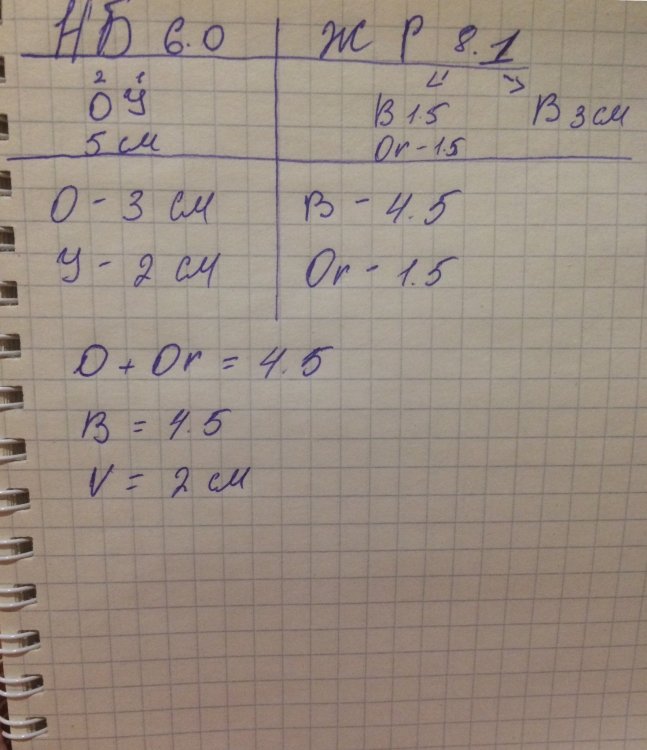 НБ 6.0
ЖР 8.1
2 1
ОУ
5 см
В 1.5
Or - 1.5
В 3 см
О - 3 см
У - 2 см
В - 4.5
Or - 1.5
О + Or = 4.5
В = 4.5
V = 2 см